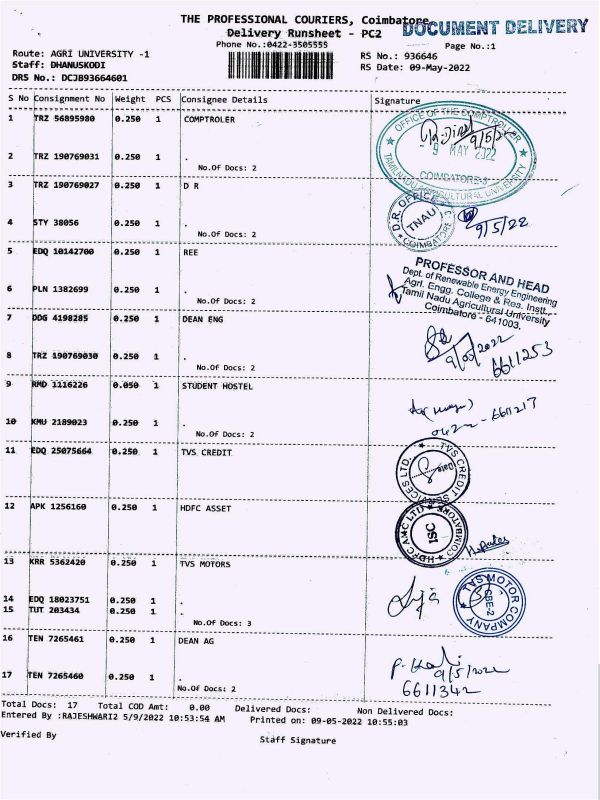 THE PROFESSIONAL COURIERS, Coimbatore
DOCUMENT DELIVERY
Delivery Runsheet - PC2
Phone No.:0422-3505555
Page No.:1
Route: AGRI UNIVERSITY -1
RS No.: 936646
Staff: DHANUSKODI
RS Date: 09-May-2022
DRS No.: DCJB93664601
S No Consignment No Weight PCS Consignee Details Signature
1 TRZ 56895980 0.250 1 COMPTROLER
OFFICE OF THE COMPTROLLER
9/5/22
- 9 MAY 2022
COIMBATORE-3
TAMILNADU AGRICULTURAL UNIVERSITY
2 TRZ 190769031 0.250 1 .
No.Of Docs: 2
3 TRZ 190769027 0.250 1 D R
D.R. OFFICE
TNAU
COIMBATORE-3
9/5/22
4 STY 38056 0.250 1 .
No.Of Docs: 2
5 EDQ 10142700 0.250 1 REE
PROFESSOR AND HEAD
Dept. of Renewable Energy Engineering
Agri. Engg. College & Res. Instt.,
Tamil Nadu Agricultural University
Coimbatore - 641003.
6 PLN 1382699 0.250 1 .
No.Of Docs: 2
7 DDG 4198285 0.250 1 DEAN ENG
9/05/2022
6611253
8 TRZ 190769030 0.250 1 .
No.Of Docs: 2
9 RMD 1116226 0.050 1 STUDENT HOSTEL
0422 - 6611217
10 KMU 2189023 0.250 1 .
No.Of Docs: 2
11 EDQ 25075664 0.250 1 TVS CREDIT
TVS CREDIT SERVICES LTD.
12 APK 1256160 0.250 1 HDFC ASSET
HDFC AMC LTD
ISC
COIMBATORE
13 KRR 5362420 0.250 1 TVS MOTORS
TVS MOTOR COMPANY
CBE-2
14 EDQ 18023751 0.250 1 .
15 TUT 203434 0.250 1 .
No.Of Docs: 3
16 TEN 7265461 0.250 1 DEAN AG
9/5/2022
6611342
17 TEN 7265460 0.250 1 .
No.Of Docs: 2
Total Docs: 17 Total COD Amt: 0.00 Delivered Docs: Non Delivered Docs:
Entered By :RAJESHWARI2 5/9/2022 10:53:54 AM Printed on: 09-05-2022 10:55:03
Verified By
Staff Signature